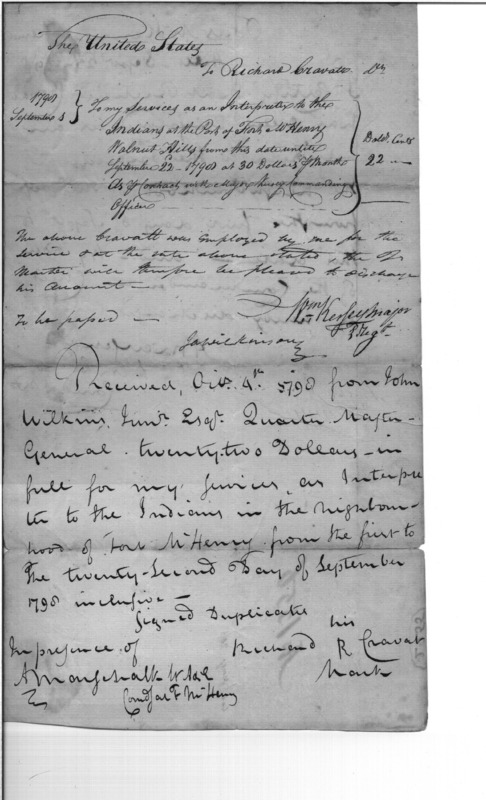 The United States
To Richard Cravate Dr
1798
September 1 To my Services as an Interpreter to the
Indians at the Post of Fort McHenry
Walnut Hills from this date untill
September 22 - 1798 at 30 Dollars Month
Dolls Cents
22 "
As Contract with Major Kersey Commanding
Officer
The above Cravatt was employed by me for the
service & at the rate above stated, the Qr
Master will therefore be pleased to discharge
his account
Wm Kersey Major
Regt
To be passed
Ja Wilkinson
Received, Octr 4th 1798 from John
Wilkins, Junr Esqr Quarter Master
General twenty two Dollars in
full for my services as Interpre
ter to the Indians in the neighbour
hood of Fort McHenry from the first to
the twenty-second Day of September
1798 inclusive
Signed Duplicate
his
In presence of Richard R Cravat
Mark
A Marschalk
Comd at F McHenry